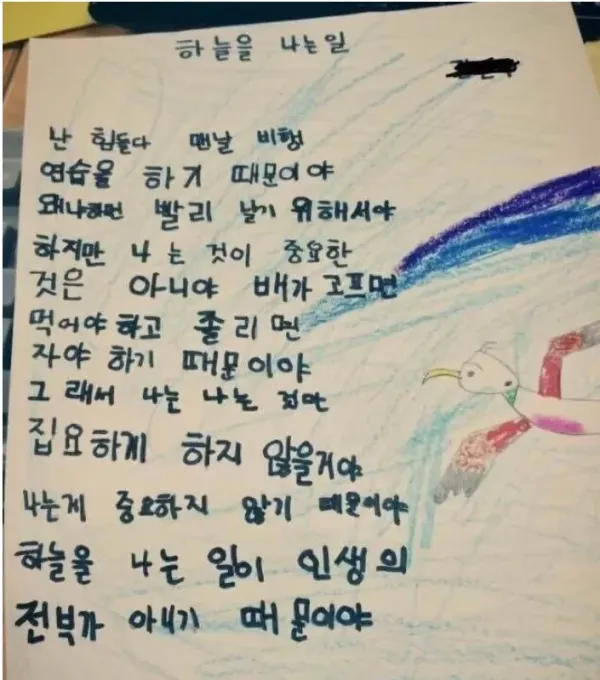 하늘을 나는일
난 힘들다 맨날 비행
연습을 하기 때문이야
왜나하면 빨리 날기 위해서야
하지만 나는 것이 중요한
것은 아니야 배가 고프면
먹어야 하고 졸리면
자야 하기 때문이야
그래서 나는 나는 것만
집요하게 하지 않을거야
나는게 중요하지 않기 때문이야
하늘을 나는 일이 인생의
전부가 아니기 때문이야